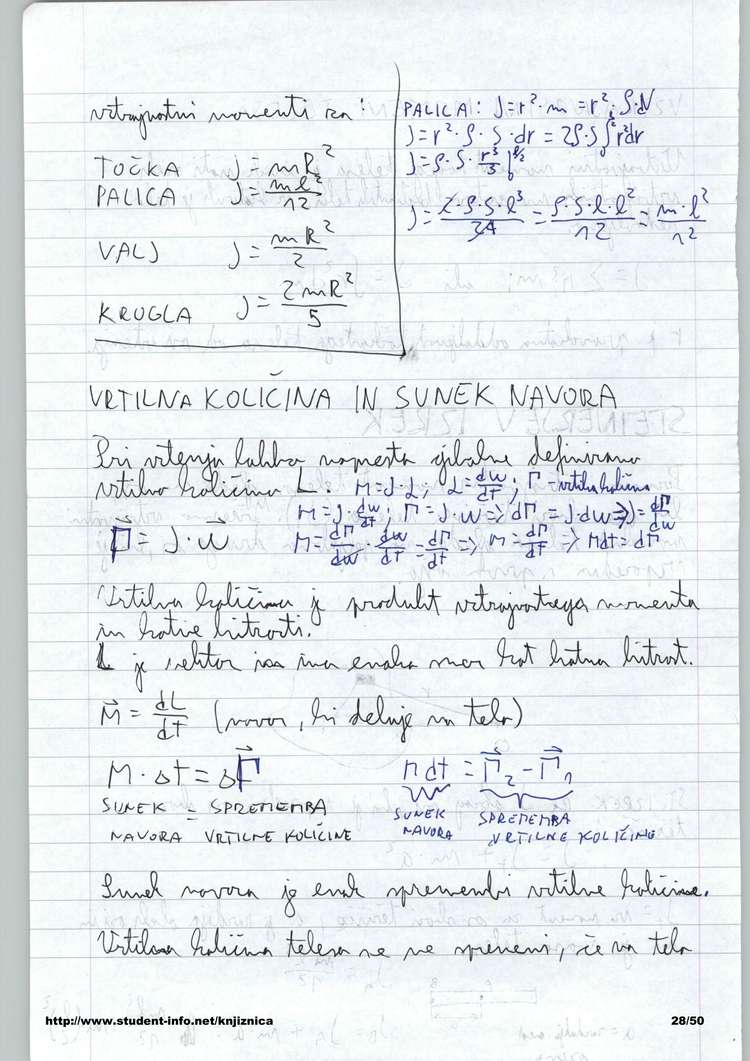 vztrajnostni momenti za:
TOČKA J = mR²
PALICA J = ml²/12
VALJ J = mR²/2
KROGLA J = 2mR²/5
PALICA: J = r²·m = r²·ρ·V
J = r²·ρ·S·dr = 2ρ·S ∫ r²dr
J = ρ·S· r³/3 |₀^{l/2}
J = 2·ρ·S·l³/24 = ρ·S·l·l²/12 = m·l²/12
VRTILNA KOLIČINA IN SUNEK NAVORA
Pri vrtenju lahko namesto gibalne definiramo
vrtilno količino L. M = J·α; α = dω/dt; Γ - vrtilna količina
M = J·dω/dt; Γ = J·ω => dΓ = J·dω => J = dΓ/dω
Γ = J·ω M = dΓ/dω · dω/dt = dΓ/dt => M = dΓ/dt => Mdt = dΓ
Vrtilna količina je produkt vztrajnostnega momenta
in kotne hitrosti.
L je vektor ima enako smer kot kotna hitrost.
M = dL/dt (navor, ki deluje na telo)
M·Δt = ΔΓ
SUNEK = SPREMEMBA
NAVORA VRTILNE KOLIČINE
Mdt = Γ₂ - Γ₁
SUNEK SPREMEMBA
NAVORA VRTILNE KOLIČINE
Sunek navora je enak spremembi vrtilne količine.
Vrtilna količina telesa se ne spremeni, če na telo
http://www.student-info.net/knjiznica 28/50